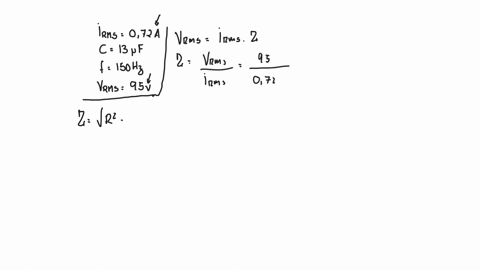 iRMS = 0,72A
C = 13 µF
f = 150Hz
VRMS = 95V
VRMS = iRMS . Z
Z = VRMS / iRMS = 95 / 0,72
Z = √R² .